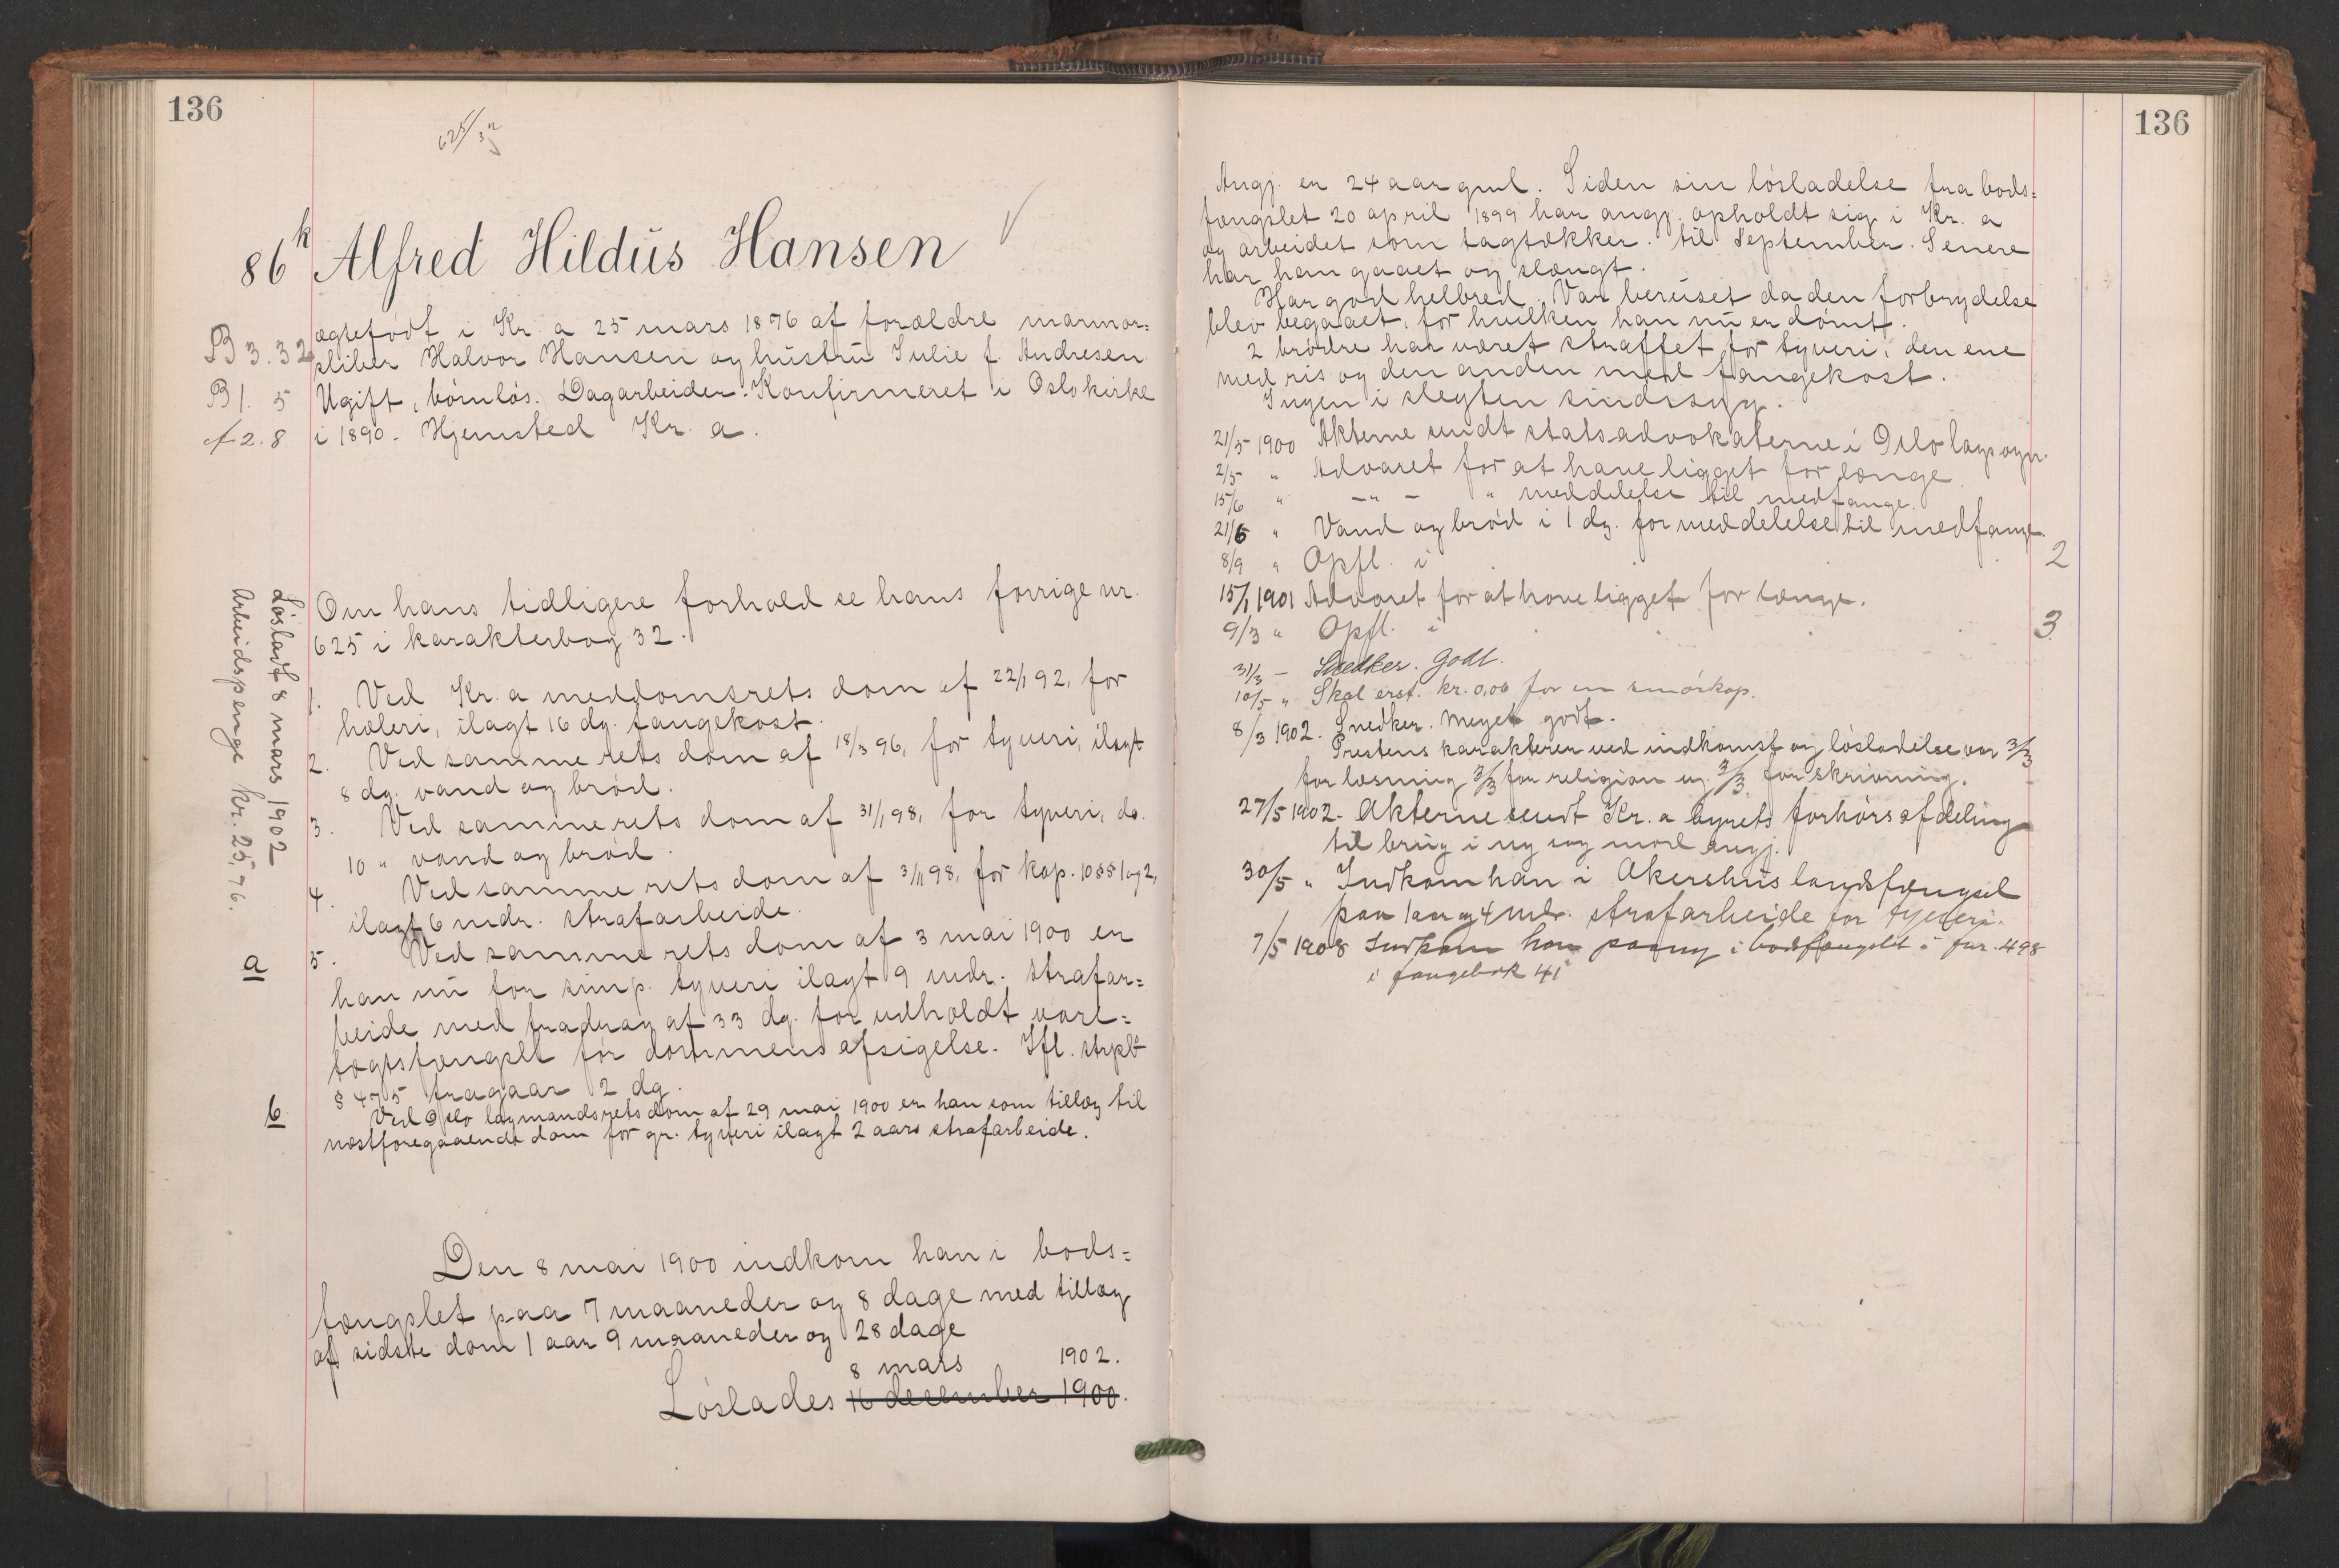 136
625/32
86k Alfred Hildus Hansen
B 3. 32
B 1. 5
f 2. 8
ægtefødt i Kr. a 25 mars 1876 af forældre marmor=
sliber Halvor Hansen og hustru Julie f. Andresen.
Ugift, børnløs. Dagarbeider. Konfirmeret i Oslo kirke
i 1890. Hjemsted Kr. a.
Løsladt 8 mars 1902
Arbeidspenge kr. 25,96.
Om hans tidligere forhold se hans forrige nr.
625 i karakterbog 32.
1. Ved Kr. a meddomsrets dom af 22/1 92, for
hæleri, ilagt 16 dg. fangekost.
2. Ved samme rets dom af 18/3 96, for tyveri, ilagt
8 dg. vand og brød.
3. Ved samme rets dom af 31/1 98, for tyveri, do.
10 " vand og brød.
4. Ved samme rets dom af 3/11 98, for kap. 10 §§ 1 og 2,
ilagt 6 mdr. strafarbeide.
a 5. Ved samme rets dom af 3 mai 1900 er
han nu for simp. tyveri ilagt 9 mdr. strafar=
beide med fradrag af 33 dg. for udholdt vare=
tægtsfængsel før dommens afsigelse. Ifl. strpl
§ 475 fragaar 2 dg.
b Ved Oslo lagmandsrets dom af 29 mai 1900 er han som tillæg til
næstforegaaende dom for gr. tyveri ilagt 2 aars strafarbeide.
Den 8 mai 1900 indkom han i bods=
fængslet paa 7 maaneder og 8 dage med tillæg
af sidste dom 1 aar 9 maaneder og 28 dage
8 mars 1902.
Løslades 16 december 1900.
136
Angj. er 24 aar gml. Siden sin løsladelse fra bods=
fængslet 20 april 1899 har angj. opholdt sig i Kr. a
og arbeidet som tagtækker til September. Senere
har han gaaet og slængt.
Har god helbred. Var beruset da den forbrydelse
blev begaaet, for hvilken han nu er dømt.
2 brødre har været straffet for tyveri, den ene
med ris og den anden med fangekost.
Ingen i slegten sindssyg.
21/5 1900 Akterne sendt statsadvokaterne i Oslo lagsogn.
2/5 " Advaret for at have ligget for længe.
15/6 " – " – " meddelelse til medfange.
21/6 " Vand og brød i 1 dg. for meddelelse til medfange.
8/9 " Opfl. i 2
15/1 1901 Advaret for at have ligget for længe.
9/3 " Opfl. i 3
31/3 – Snedker. Godt.
10/5 " Skal erst. kr. 0,06 for en smørkop.
8/3 1902. Snedker. Meget godt.
Prestens karakterer ved indkomst og løsladelse var 3/3
for læsning, 3/3 for religion og 3/3 for skrivning.
27/5 1902. Akterne sendt Kr. a byrets forhørsafdeling
til brug i ny sag mod angj.
30/5 " Indkom han i Akershus landsfængsel
paa 1 aar og 4 mdr. strafarbeide for tyveri.
7/5 1908 Indkom han paany i bodsfængslet i fnr. 498
i fangebok 41